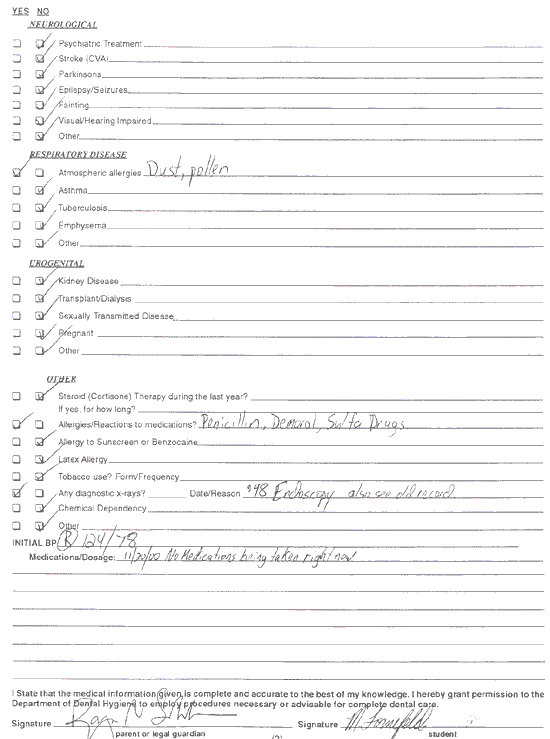 YES NO
NEUROLOGICAL
Psychiatric Treatment
Stroke (CVA)
Parkinsons
Epilepsy/Seizures
Fainting
Visual/Hearing Impaired
Other
RESPIRATORY DISEASE
Atmospheric allergies Dust, pollen
Asthma
Tuberculosis
Emphysema
Other
UROGENITAL
Kidney Disease
Transplant/Dialysis
Sexually Transmitted Disease
Pregnant
Other
OTHER
Steroid (Cortisone) Therapy during the last year?
If yes, for how long?
Allergies/Reactions to medications? Penicillin, Demoral, Sulfa Drugs
Allergy to Sunscreen or Benzocaine
Latex Allergy
Tobacco use? Form/Frequency
Any diagnostic x-rays? Date/Reason 98 Endoscopy also see old record
Chemical Dependency
Other
INITIAL BP (R) 124/78
Medications/Dosage: 11/20/00 No Medications being taken right now
I State that the medical information given is complete and accurate to the best of my knowledge. I hereby grant permission to the
Department of Dental Hygiene to employ procedures necessary or advisable for complete dental care.
Signature Signature M.
parent or legal guardian student
(2)